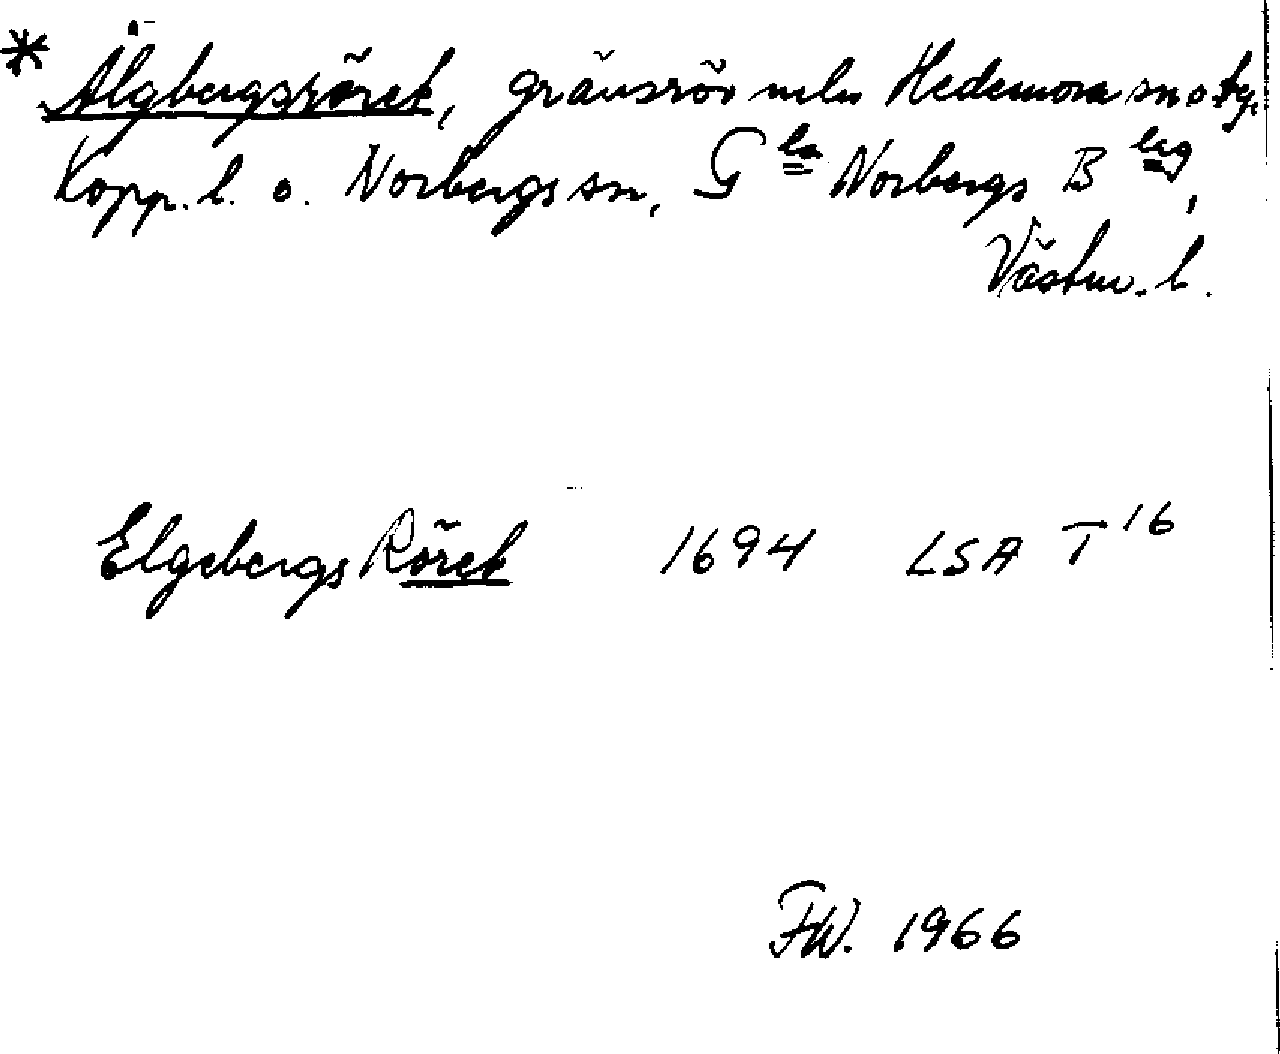 * Älgbergsröret, gränsrör mln Hedemora sn o tg.
Kopp. l. o. Norbergs sn, G la Norbergs B lag,
Västm. l.
Elgebergs Röret 1694 LSA T 16
FW. 1966